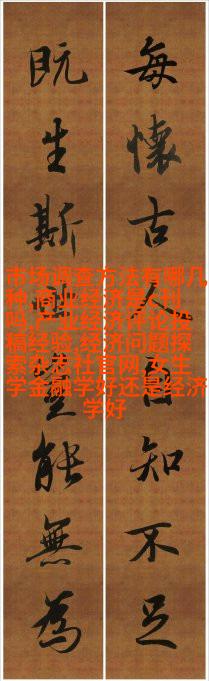 每懷古人知不足
既生斯能無為
市场调查方法有哪几
种,商业经济是c刊
吗,产业经济评论投
稿经验,经济问题探
索杂志社官网,女生
学金融学好还是经济
学好